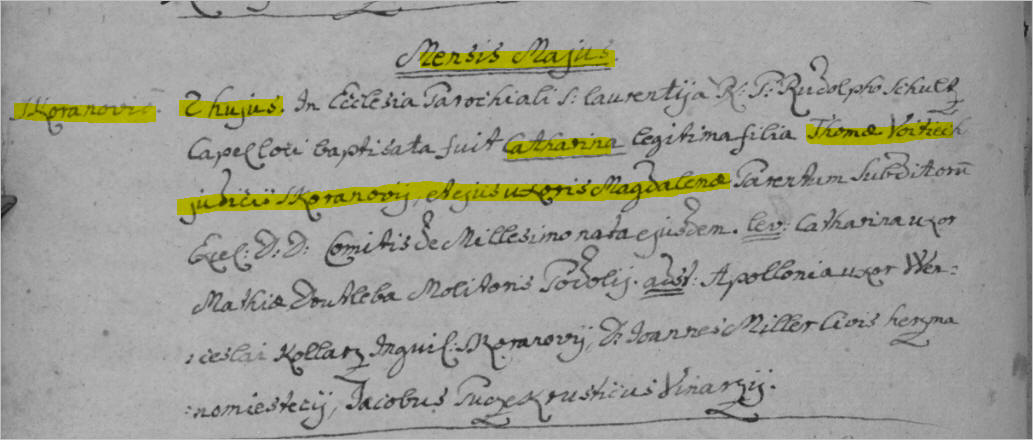 Mensis Majus.
Skoranovic.
2 hujus. In Ecclesia Parochiali S: laurentija R: P: Rudolpho Schultz
Capellou baptisata fuit Catharina legitima filia Thomæ Voitiech
judicis Skoranovij, et ejus uxoris Magdalenæ Parentum Subditorũ
Excel: D: D: Comitis de Millesimo nata ejusdem. lev: Catharina uxor
Mathiæ Doutleba Molitoris Podolij. aust: Apollonia uxor Wen=
:ceslai Kollarz Inquil: Skoranovij, D: Joannes Miller Civis herzma
:nomiestecij, Jacobus Rusticus Vinarzij.